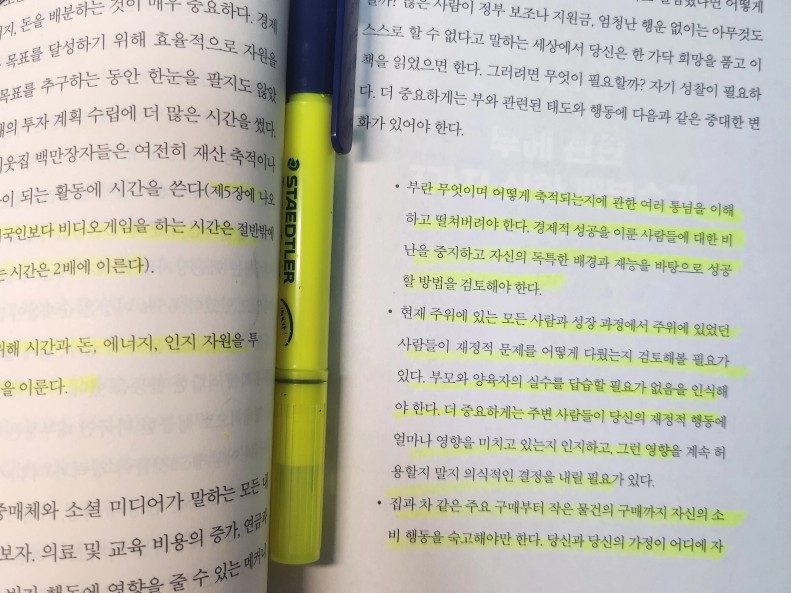 돈을 배분하는 것이 매우 중요하다. 경제
목표를 달성하기 위해 효율적으로 자원을
목표를 추구하는 동안 한눈을 팔지도 않았
투자 계획 수립에 더 많은 시간을 썼다.
백만장자들은 여전히 재산 축적이나
이 되는 활동에 시간을 쓴다(제5장에 나오
비디오게임을 하는 시간은 절반밖에
시간은 2배에 이른다).
위해 시간과 돈, 에너지, 인지 자원을 투
을 이룬다.
소셜 미디어가 말하는 모든 내
보자. 의료 및 교육 비용의 증가, 연금과
행동에 영향을 줄 수 있는 메커니
STAEDTLER
많은 사람이 정부 보조나 지원금, 엄청난 행운 없이는 아무것도
스스로 할 수 없다고 말하는 세상에서 당신은 한 가닥 희망을 품고 이
책을 읽었으면 한다. 그러려면 무엇이 필요할까? 자기 성찰이 필요하
다. 더 중요하게는 부와 관련된 태도와 행동에 다음과 같은 중대한 변
화가 있어야 한다.
• 부란 무엇이며 어떻게 축적되는지에 관한 여러 통념을 이해
하고 떨쳐버려야 한다. 경제적 성공을 이룬 사람들에 대한 비
난을 중지하고 자신의 독특한 배경과 재능을 바탕으로 성공
할 방법을 검토해야 한다.
• 현재 주위에 있는 모든 사람과 성장 과정에서 주위에 있었던
사람들이 재정적 문제를 어떻게 다뤘는지 검토해볼 필요가
있다. 부모와 양육자의 실수를 답습할 필요가 없음을 인식해
야 한다. 더 중요하게는 주변 사람들이 당신의 재정적 행동에
얼마나 영향을 미치고 있는지 인지하고, 그런 영향을 계속 허
용할지 말지 의식적인 결정을 내릴 필요가 있다.
• 집과 차 같은 주요 구매부터 작은 물건의 구매까지 자신의 소
비 행동을 숙고해야만 한다. 당신과 당신의 가정이 어디에 자